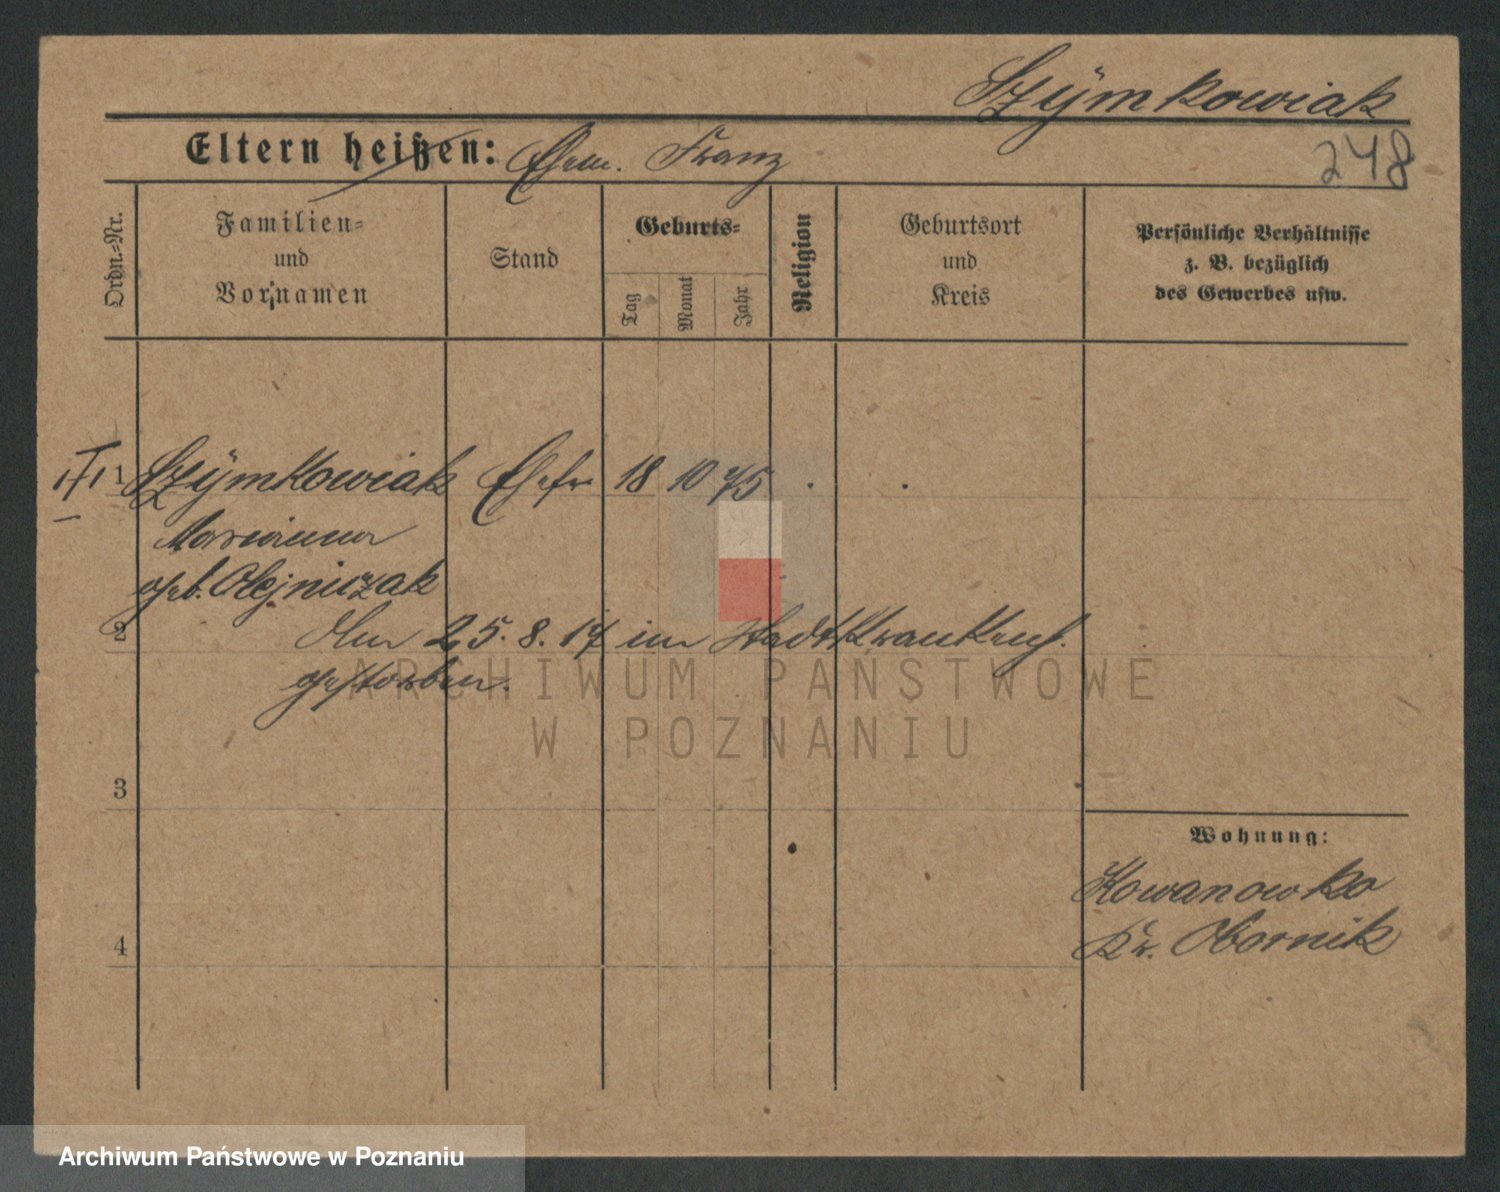 Szÿmkowiak
248
Eltern heißen: Ehem. Franz
Ordn.-Nr.
Familien-
und
Vornamen
Stand
Geburts-
Tag
Monat
Jahr
Religion
Geburtsort
und
Kreis
Persönliche Verhältnisse
z. B. bezüglich
des Gewerbes usw.
1 Szÿmkowiak Ehefr 18 10 75 . .
Marianna
geb. Olejniczak
2
Am 25.8.17 im Stadtkrankenh.
gestorben.
3
4
Wohnung:
Kowanowko
Kr. Obornik
ARCHIWUM PAŃSTWOWE
W POZNANIU
Archiwum Państwowe w Poznaniu